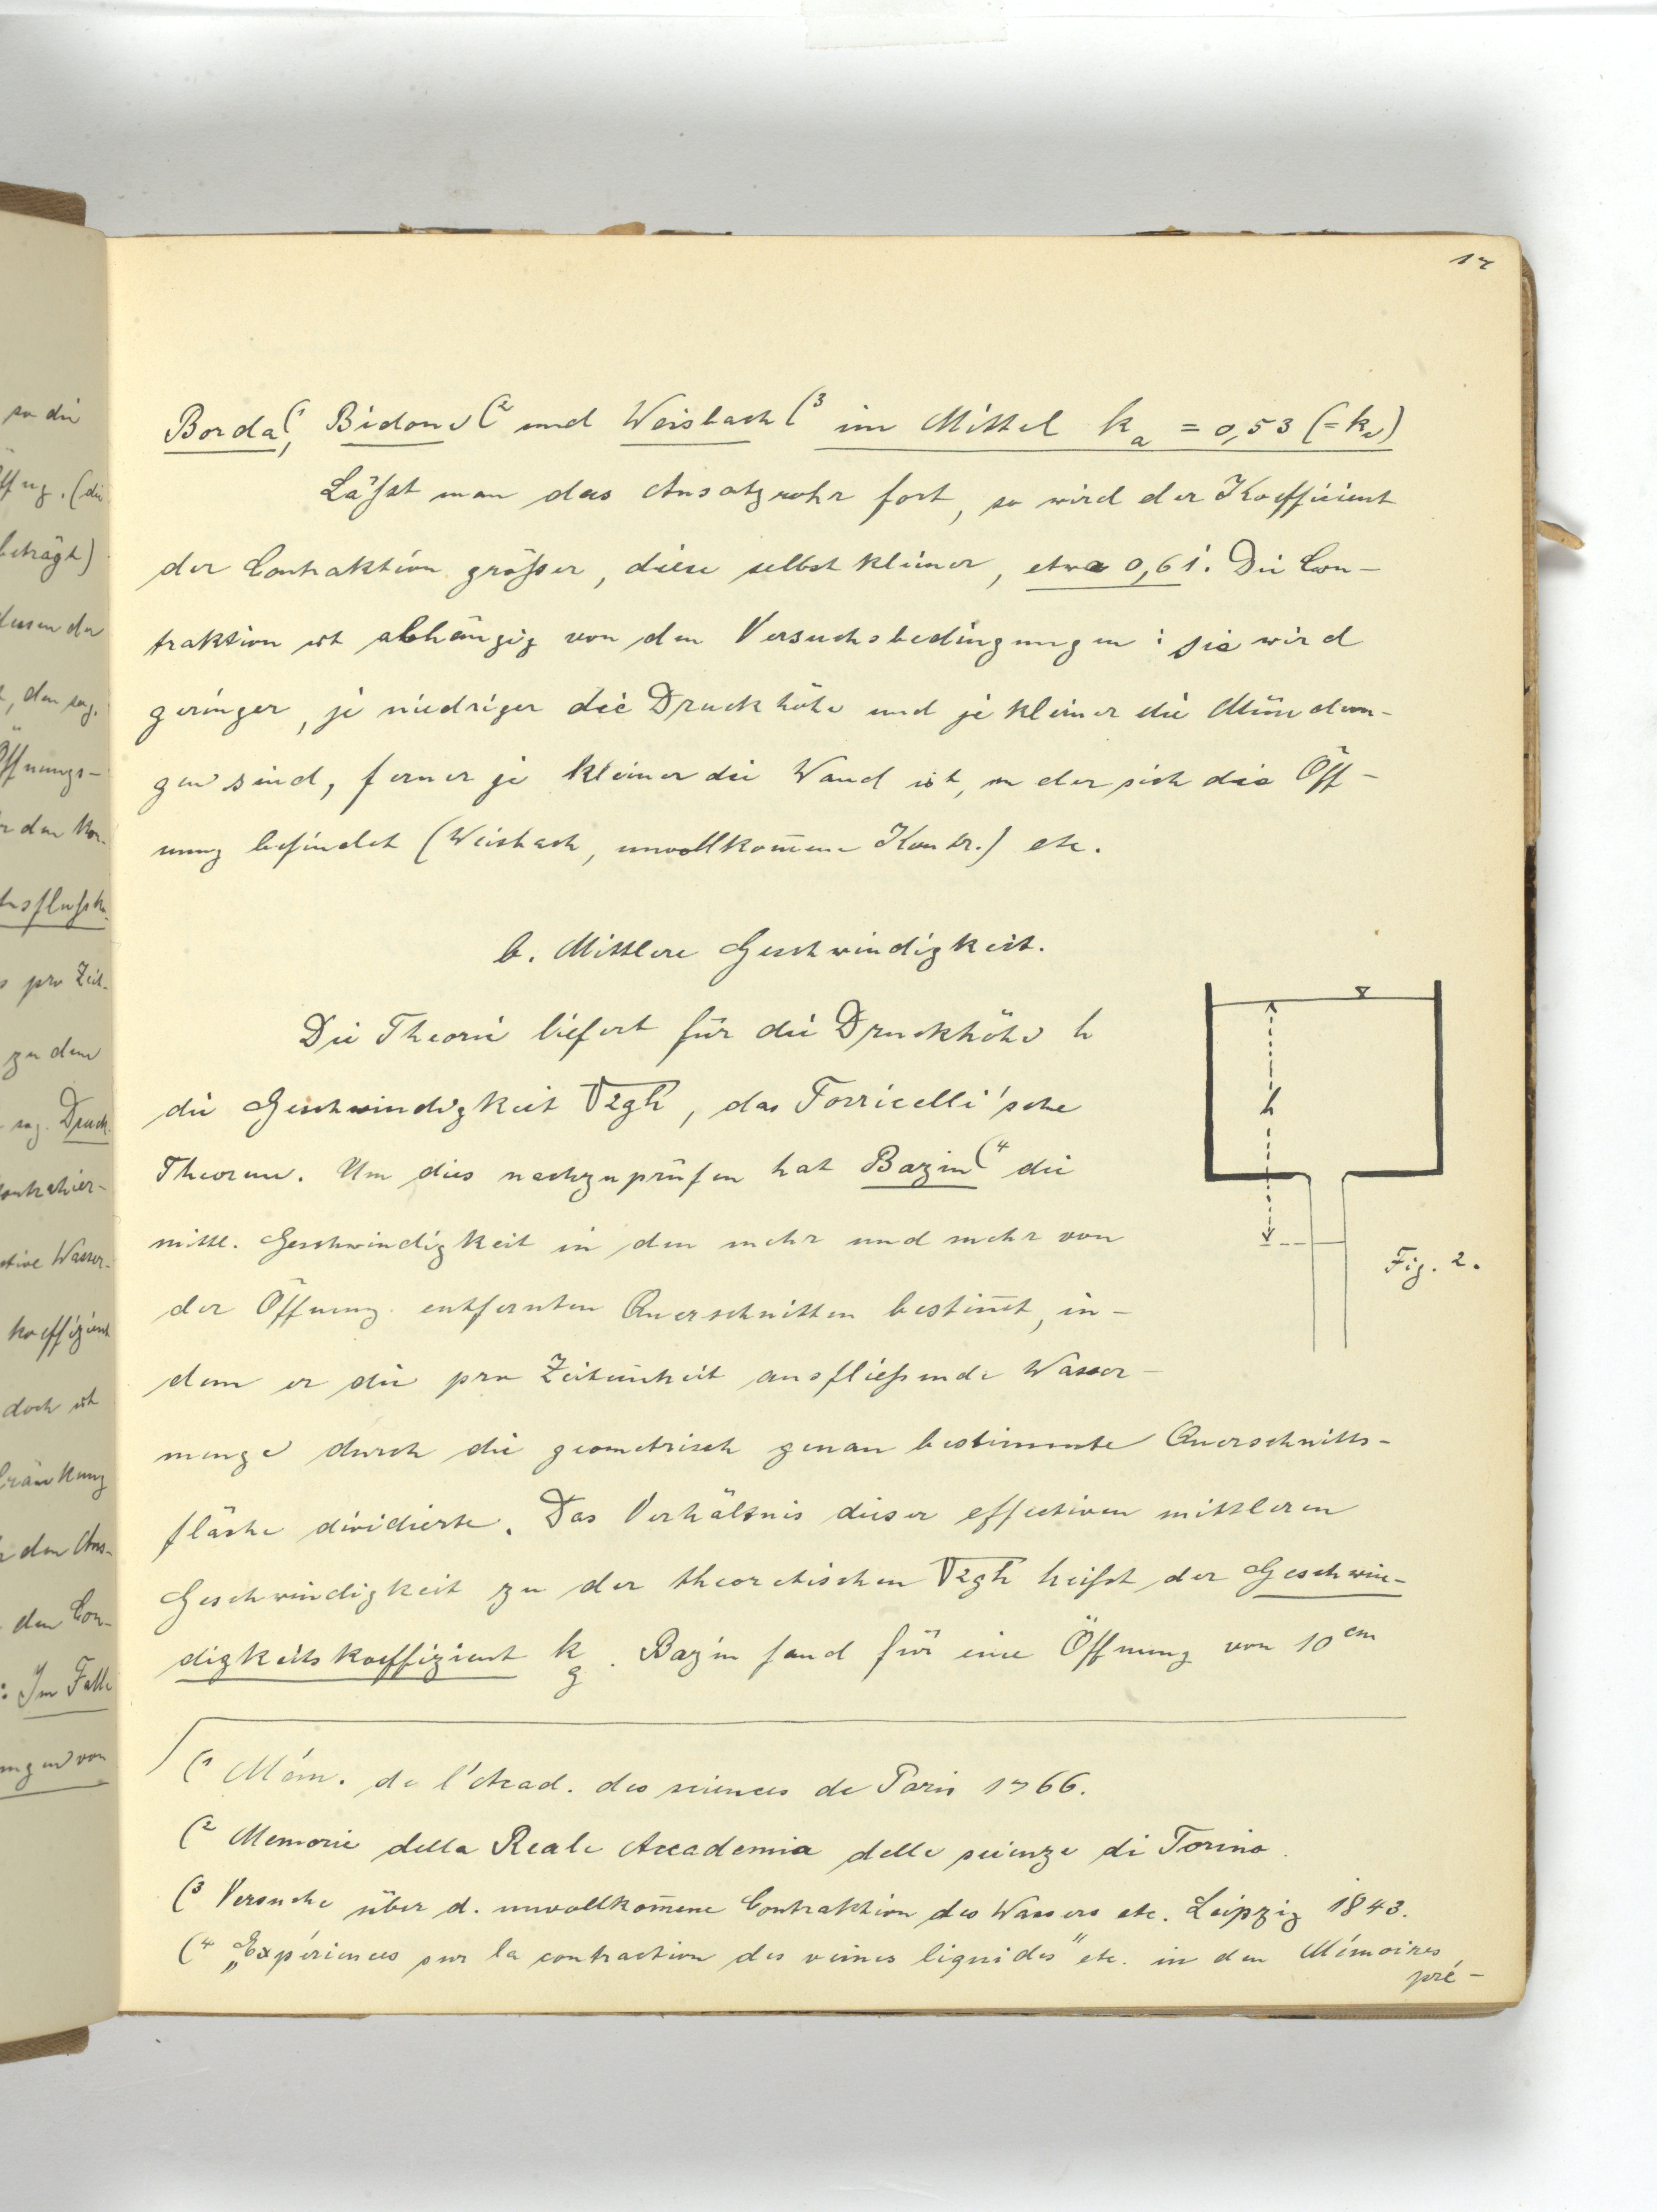 so die
17
ffng. (die
beträgt)
dessen der
t, den sog.
Öffnungs-
usflußk.
s pro Zeit-
zu dem
sog. Druck-
contrahier-
ktive Wasser-
koeffizient
doch ist
den Con-
: Im Falle
ungen von
Borda(1, Bidone(2 und Weisbach(3 im Mittel ka = 0,53 (= kc)
Läßst man das Ansatzrohr fort, so wird der Koefficient
der Contraktion größer, diese selbst kleiner, etwa 0,61. Die Con-
traktion ist abhängig von den Versuchsbedingungen: sie wird
geringer, je niedriger die Druckhöhe und je kleiner die Mündun-
gen sind, ferner je kleiner die Wand ist, in der sich die Öff-
nung befindet (Weisbach, unvollkom̅ene Kontr.) etc.
b. Mittlere Geschwindigkeit.
Die Theorie liefert für die Druckhöhe h
die Geschwindigkeit √2gh, das Torricelli'sche
Theorem. Um dies nachzuprüfen hat Bazin(4 die
mittl. Geschwindigkeit in den mehr und mehr von
der Öffnung entfernten Querschnitten bestim̅t, in-
dem er die pro Zeiteinheit ausfließende Wasser-
menge durch die geometrisch genau bestimmte Querschnitts-
fläche dividierte. Das Verhältnis dieser effectiven mittleren
Geschwindigkeit zu der theoretischen √2gh heißt der Geschwin-
digkeitskoeffizient kg. Bazin fand für eine Öffnung von 10 cm
h
Fig. 2.
(1 Mém. de l'Acad. des sciences de Paris 1766.
(2 Memorie della Reale Accademia delle scienze di Torino.
(3 Versuche über d. unvollkom̅ene Contraktion des Wassers etc. Leipzig 1843.
(4 „Expériences sur la contraction des veines liquides" etc. in den Mémoires
pré-